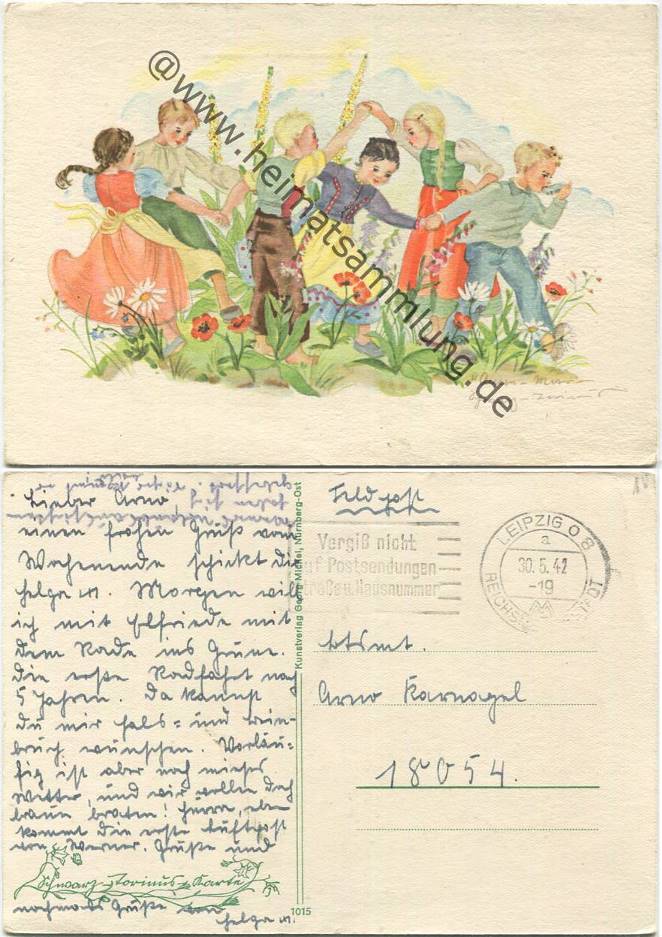 @www.heimatsammlung.de
Lieber Arno,
einen frohen Gruß vom
Wochenende schickt die
Helga M. Morgen will
ich mit Elfriede mit
dem Rade ins Grüne.
Die erste Radfahrt nach
5 Jahren. Da kannst
Du mir Hals= und Bein-
bruch wünschen. Vorläu-
fig ist aber noch mieses
Wetter, und wir wollen doch
braun braten! Hurra, eben
kommt die erste Luftpost
von Werner. Grüße und
Schwarz-Torinus-Karte
nochmals Grüße von
Helga M.
Kunstverlag Georg Michel, Nürnberg-Ost
1015
Feldpost
Vergiß nicht
auf Postsendungen
Straße u. Hausnummer
LEIPZIG O 8
a
30.5.42
-19
REICHSMESSESTADT
Arno Karnagel
18054.